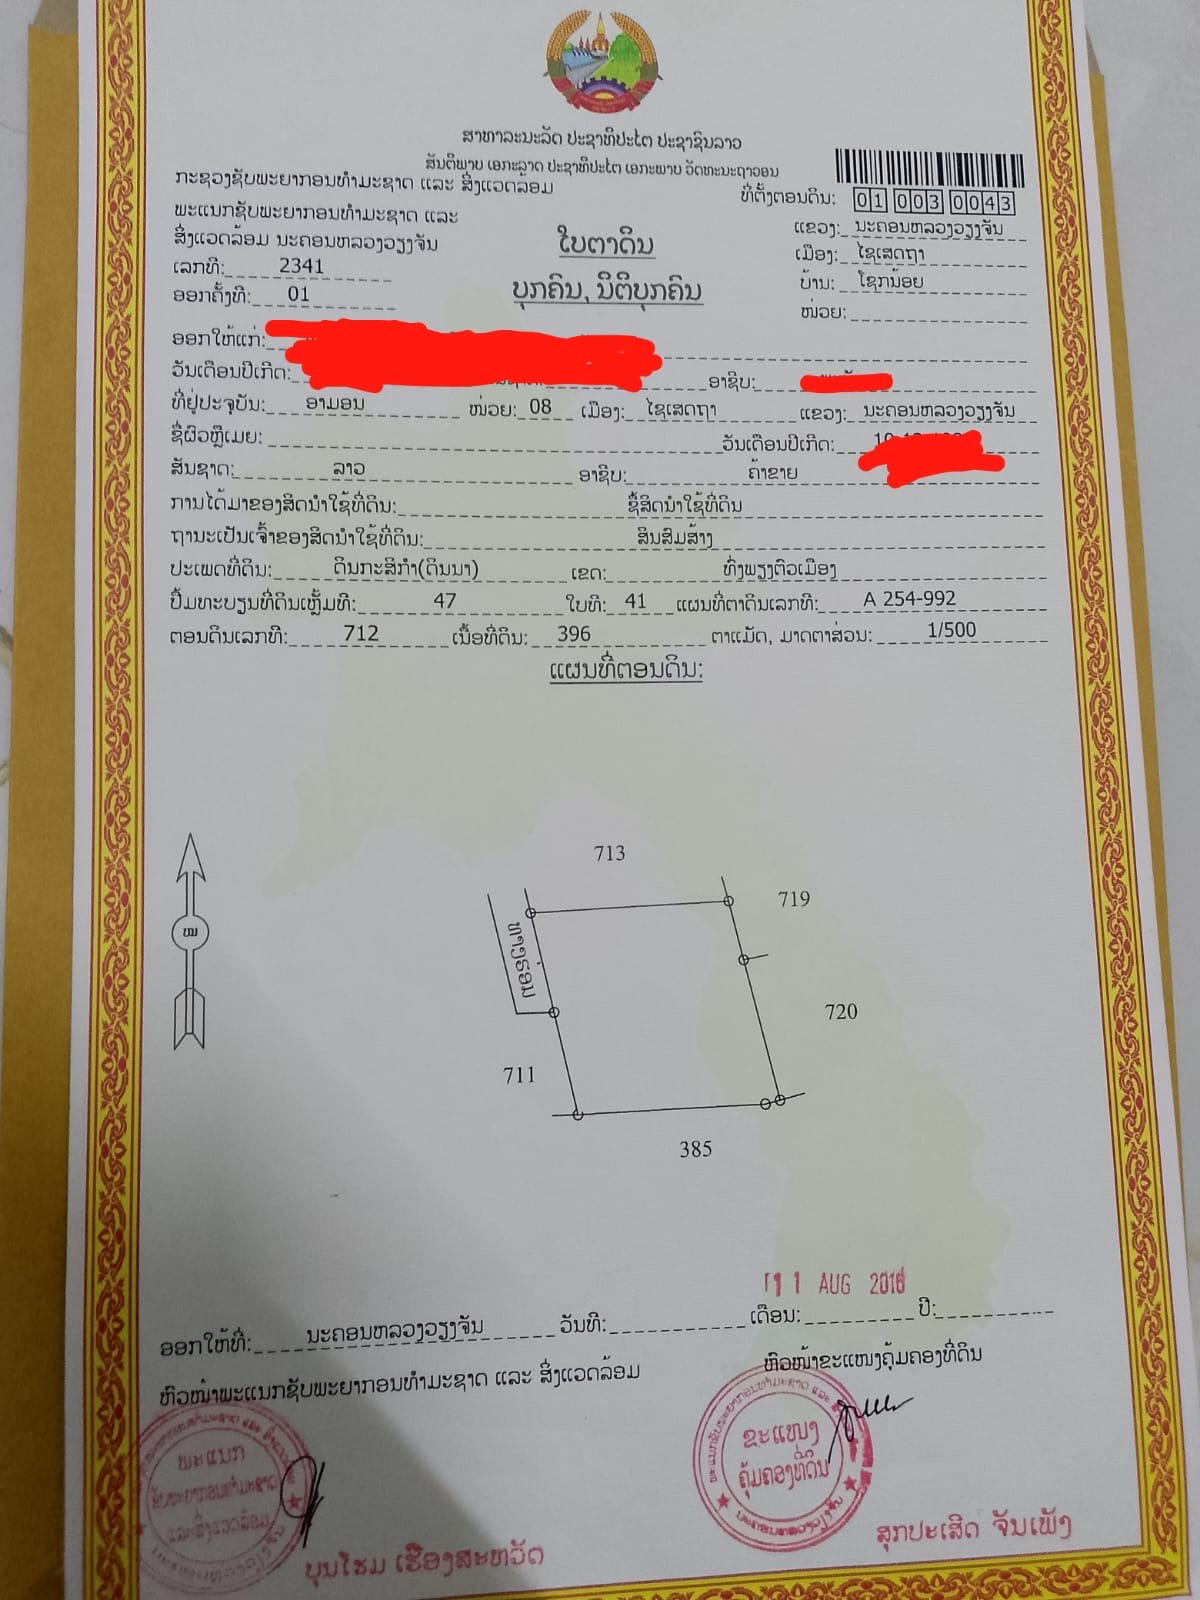 ສາທາລະນະລັດ ປະຊາທິປະໄຕ ປະຊາຊົນລາວ
ສັນຕິພາບ ເອກະລາດ ປະຊາທິປະໄຕ ເອກະພາບ ວັດທະນະຖາວອນ
ກະຊວງຊັບພະຍາກອນທຳມະຊາດ ແລະ ສິ່ງແວດລ້ອມ
ທີ່ຕັ້ງຕອນດິນ: 01 003 0043
ພະແນກຊັບພະຍາກອນທຳມະຊາດ ແລະ
ສິ່ງແວດລ້ອມ ນະຄອນຫລວງວຽງຈັນ
ແຂວງ: ນະຄອນຫລວງວຽງຈັນ
ໃບຕາດິນ
ເມືອງ: ໄຊເສດຖາ
ເລກທີ: 2341
ບ້ານ: ໂຊກນ້ອຍ
ອອກຄັ້ງທີ: 01
ບຸກຄົນ, ນິຕິບຸກຄົນ
ໜ່ວຍ:
ອອກໃຫ້ແກ່:
ວັນເດືອນປີເກີດ: ອາຊີບ:
ທີ່ຢູ່ປະຈຸບັນ: ອາມອນ ໜ່ວຍ: 08 ເມືອງ: ໄຊເສດຖາ ແຂວງ: ນະຄອນຫລວງວຽງຈັນ
ຊື່ຜົວຫຼືເມຍ: ວັນເດືອນປີເກີດ:
ສັນຊາດ: ລາວ ອາຊີບ: ຄ້າຂາຍ
ການໄດ້ມາຂອງສິດນຳໃຊ້ທີ່ດິນ: ຊື້ສິດນຳໃຊ້ທີ່ດິນ
ຖານະເປັນເຈົ້າຂອງສິດນຳໃຊ້ທີ່ດິນ: ສິນສົມສ້າງ
ປະເພດທີ່ດິນ: ດິນກະສິກຳ(ດິນນາ) ເຂດ: ທົ່ງພຽງຕົວເມືອງ
ປຶ້ມທະບຽນທີ່ດິນເຫຼັ້ມທີ: 47 ໃບທີ: 41 ແຜນທີ່ຕາດິນເລກທີ: A 254-992
ຕອນດິນເລກທີ: 712 ເນື້ອທີ່ດິນ: 396 ຕາແມັດ, ມາດຕາສ່ວນ: 1/500
ແຜນທີ່ຕອນດິນ:
713
719
ທາງຮ່ອມ
ໜ
720
711
385
11 AUG 2016
ອອກໃຫ້ທີ່: ນະຄອນຫລວງວຽງຈັນ ວັນທີ: ເດືອນ: ປີ:
ຫົວໜ້າພະແນກຊັບພະຍາກອນທຳມະຊາດ ແລະ ສິ່ງແວດລ້ອມ
ຫົວໜ້າຂະແໜງຄຸ້ມຄອງທີ່ດິນ
ພະແນກ
ຊັບພະຍາກອນທຳມະຊາດ
ແລະສິ່ງແວດລ້ອມ
ຂະແໜງ
ຄຸ້ມຄອງທີ່ດິນ
ນະຄອນຫລວງວຽງຈັນ
ບຸນໂຮມ ເຮືອງສະຫວັດ
ສຸກປະເສີດ ຈັນເພັງ